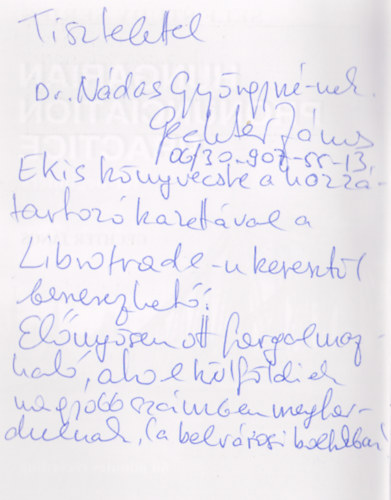 Tisztelettel
Dr. Nádas Györgyné-nek.
Gechter János
06/30-907-55-13.
E kis könyvecske a hozzá-
tartozó kazettával a
Librotrade-n keresztől
beszerezhető!
Előnyösen ott forgalmaz-
ható, ahol külföldiek
nagyobb számban megfor-
dulnak, (a belvárosi boltban)